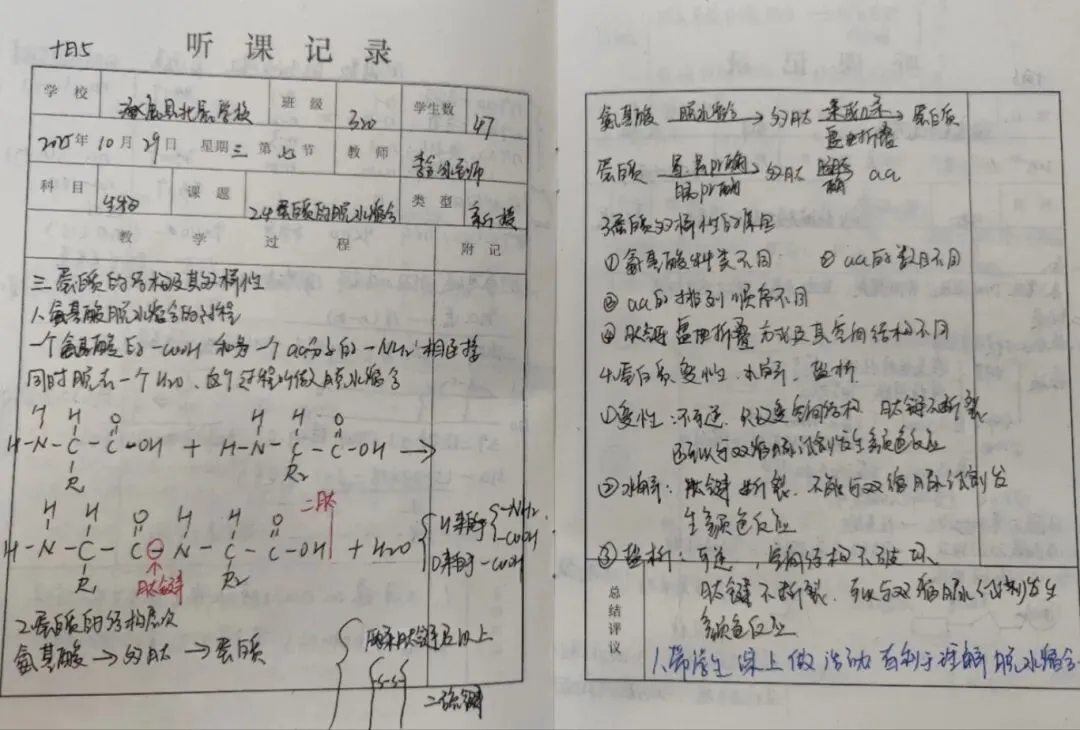 听课记录
学校 班级 320 学生数 47
2025年10月29日 星期三 第七节 教师
科目 生物 课题 2.4蛋白质的脱水缩合 类型 新授
教学过程 附记
三.蛋白质的结构及其多样性
1.氨基酸脱水缩合的过程
一个氨基酸的-COOH 和另一个aa分子的-NH2相连接
同时脱去一个H2O、这个过程叫做脱水缩合
H H O H H O
H-N-C-C-OH + H-N-C-C-OH →
R1 R2
二肽
H H O H H O
H-N-C-C-N-C-C-OH + H2O
R1 R2
肽键
H来自于 -NH2 -COOH
O来自于-COOH
2.蛋白质的结构层次
氨基酸→多肽→蛋白质
-S-S-
二硫键
氨基酸 脱水缩合→多肽 盘曲折叠→蛋白质
蛋白质 →多肽 肽酶 aa
3蛋白质多样性的原因
①氨基酸种类不同 ②aa的数目不同
③aa的排列顺序不同
④肽链盘曲折叠方式及其空间结构不同
4.蛋白质变性、水解、盐析
①变性:不可逆、只改变空间结构 肽键不断裂
还可以与双缩脲试剂发生颜色反应
②水解:肽键断裂、不能与双缩脲试剂发
生颜色反应
③盐析:可逆,空间结构不破坏
肽键不断裂、可以与双缩脲试剂发生
颜色反应
总结评议
1.带学生课上做活动 有利于理解脱水缩合